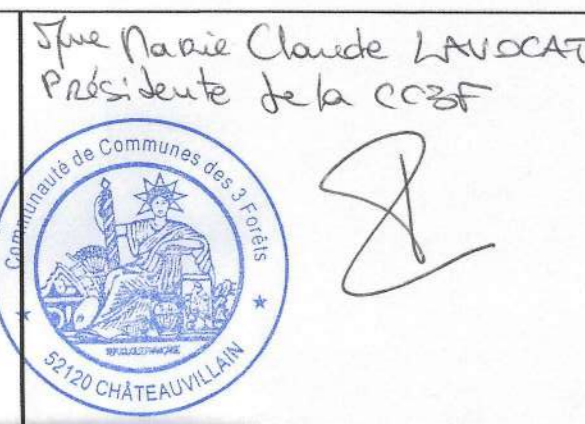 Mme Marie Claude LAVOCAT
Présidente de la CC3F
Communauté de Communes des 3 Forêts
52120 CHÂTEAUVILLAIN